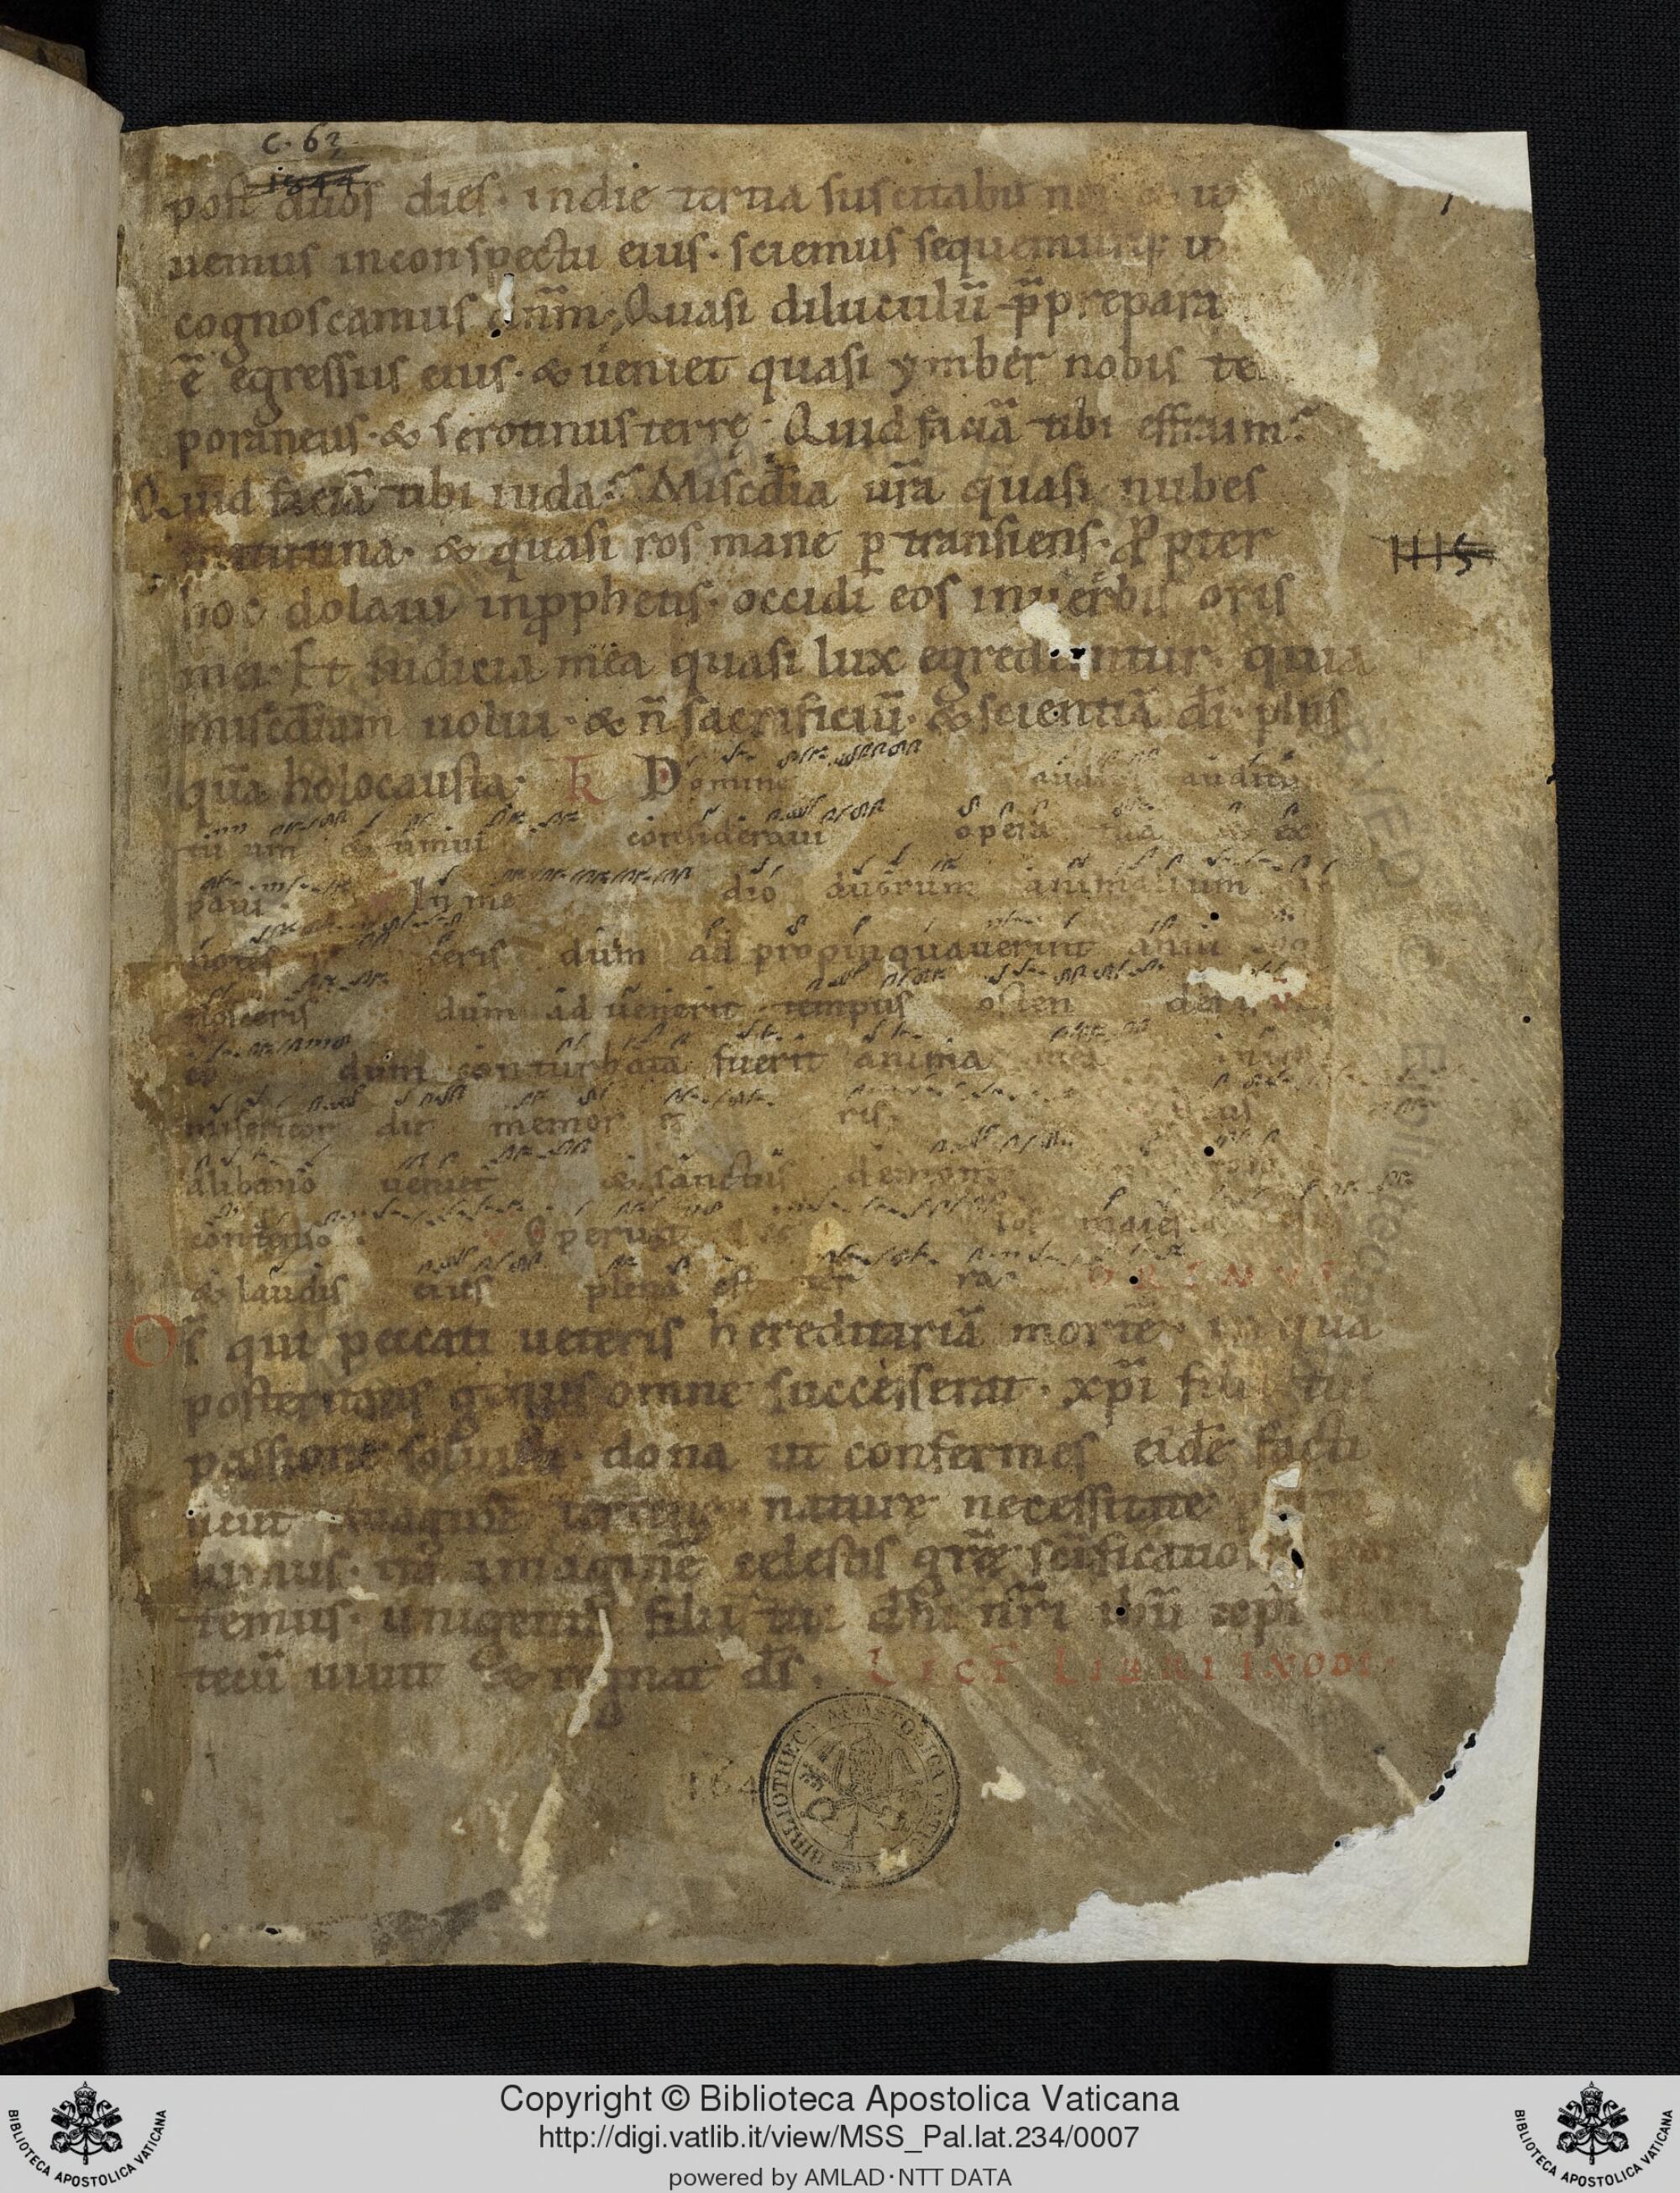 C. 62
1844
post duos dies. indie tertia suscitabit nos & ui
uemus inconspectu eius. sciemus sequemurq; ut
cognoscamus dnm. Quasi diluculū p̄preparat
ē egressus eius. & ueniet quasi ymber nobis te
poraneus. & serotinus terrę. Quid faciā tibi effraim?
Quid faciā tibi iuda? Miscdia ur̄a quasi nubes
matutina. & quasi ros mane p transiens. Propter
hoc dolaui inprophetis. occidi eos inuerbis oris
mei. Et iudicia mea quasi lux egredientur. quia
miscdiam uolui. & n̄ sacrificiū. & scientiā di. plus
quā holocausta. Domine audiui auditū
tuum & timui consideraui opera tua & ex
paui. In me dio duorum animalium in
notesceris dum ad propinquauerint anni co
gnosceris dum ad uenerit tempus osten deris
eo dum conturbata fuerit anima mea
misericor die memor eris
alibano ueniet & sanctus demonte
condenso Operuit celos maiestas
& laudis eius plena est ter ra. OREMVS
Ds̄ qui peccati ueteris hereditariā mortē. in qua
posteritatis genus omne successerat. xpi filii tui
passione soluisti. dona ut conformes eidē facti
sicut imaginē terrenę naturę necessitate porta
uimus. ita imaginē celestis grę scificatione por
temus. unigeniti filii tui dni nr̄i ihu xpi qui
tecū uiuit & regnat ds̄. LECT LIBRI EXODI
1115
164
BIBLIOTHECA APOSTOLICA VATICANA
Copyright © Biblioteca Apostolica Vaticana
http://digi.vatlib.it/view/MSS_Pal.lat.234/0007
powered by AMLAD·NTT DATA
BIBLIOTECA APOSTOLICA VATICANA
BIBLIOTECA APOSTOLICA VATICANA